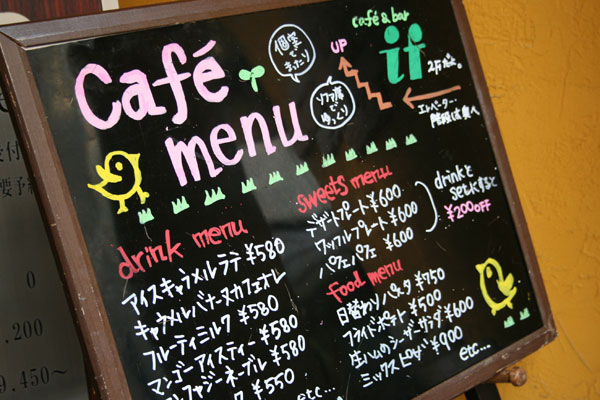 café & bar
if
UP
2Fだよ。
エレベーター・
階段は奥へ
Café
menu
個室で
まったり
ソファ席で
ゆっくり
drink menu
アイスキャラメルラテ ¥580
キャラメルバナーヌカフェオレ
フルーティミルク ¥580
マンゴーアイスティー ¥580
ファジーネーブル ¥580
¥550
etc...
sweets menu
デザートプレート ¥600
ワッフルプレート ¥600
パフェパフェ ¥600
drinkと
setにすると
¥200OFF
food menu
日替わりパスタ ¥750
フライドポテト ¥500
生ハムのシーザーサラダ ¥600
ミックスピザ ¥900
etc...
付
要予約
0
,200
9,450～